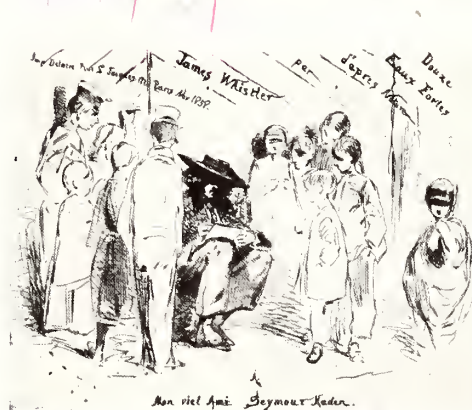 Douze
Eaux Fortes
d'apres
par
James Whistler
Imp Delatre Rue St Jacques 171
Paris Nov 1858
Mon viel Ami Seymour Haden.